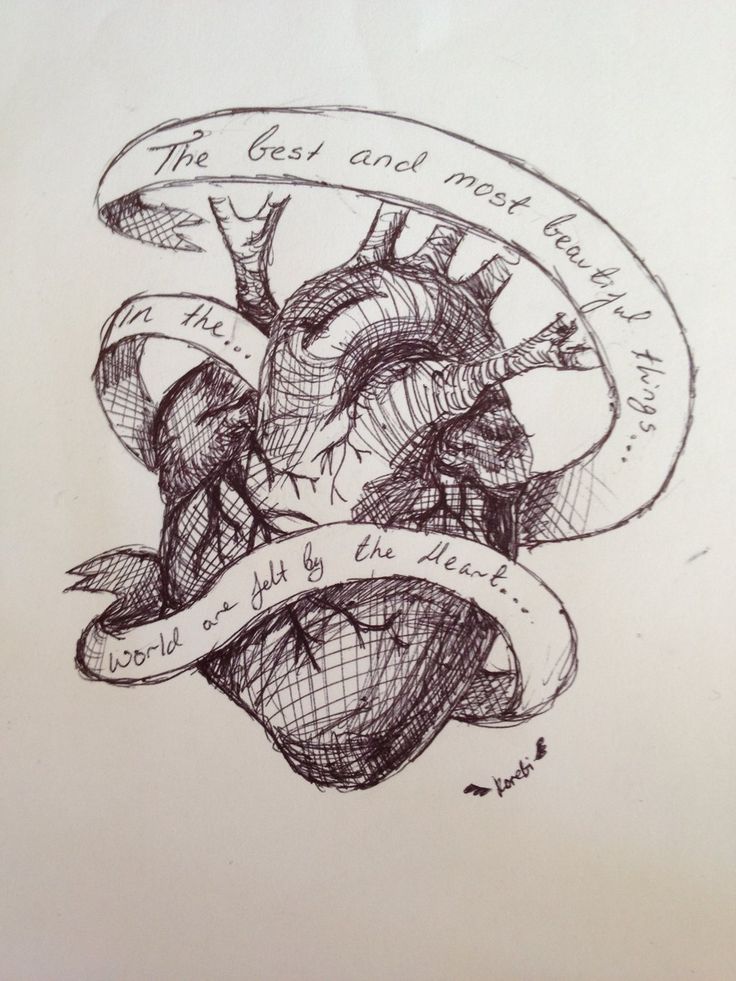 The best and most beautiful things...
In the...
World are felt by the Heart....
Korebi